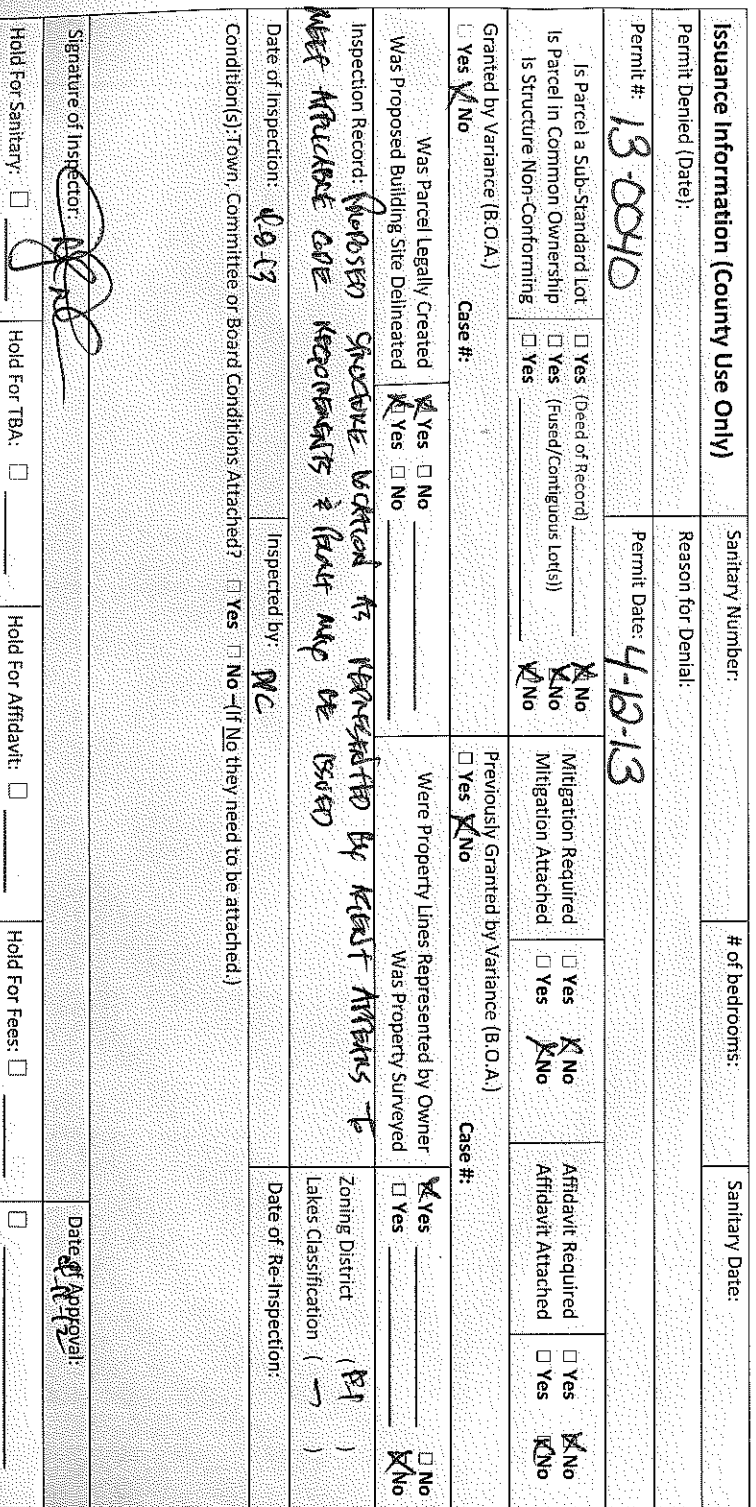 Issuance Information (County Use Only)
Sanitary Number:
# of bedrooms:
Sanitary Date:
Permit Denied (Date):
Reason for Denial:
Permit #: 13-0040
Permit Date: 4-12-13
Is Parcel a Sub-Standard Lot ☐ Yes (Deed of Record) ☒ No
Is Parcel in Common Ownership ☐ Yes (Fused/Contiguous Lot(s)) ☒ No
Is Structure Non-Conforming ☐ Yes ☒ No
Mitigation Required ☐ Yes ☒ No
Mitigation Attached ☐ Yes ☒ No
Affidavit Required ☐ Yes ☒ No
Affidavit Attached ☐ Yes ☒ No
Granted by Variance (B.O.A.)
☐ Yes ☒ No Case #:
Previously Granted by Variance (B.O.A.)
☐ Yes ☒ No Case #:
Was Parcel Legally Created ☒ Yes ☐ No
Was Proposed Building Site Delineated ☒ Yes ☐ No
Were Property Lines Represented by Owner ☒ Yes ☐ No
Was Property Surveyed ☐ Yes ☒ No
Inspection Record: Proposed structure location as represented by agent appears to
meet applicable code requirements & permit may be issued
Zoning District ( )
Lakes Classification ( )
Date of Inspection:
Inspected by:
Date of Re-Inspection:
Condition(s): Town, Committee or Board Conditions Attached? ☐ Yes ☐ No – (If No they need to be attached.)
Signature of Inspector:
Date of Approval:
Hold For Sanitary: ☐
Hold For TBA: ☐
Hold For Affidavit: ☐
Hold For Fees: ☐
☐